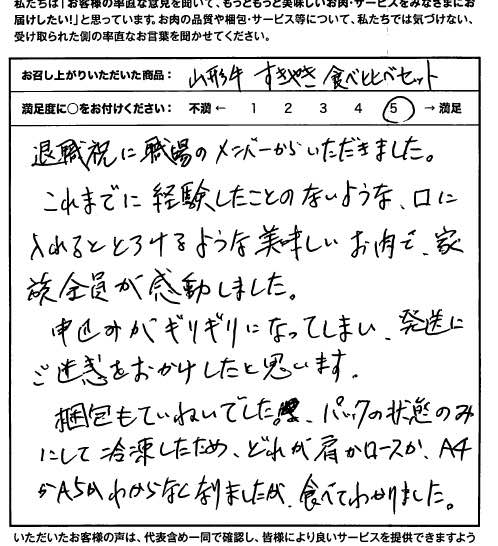 私たちは「お客様の率直な意見を聞いて、もっともっと美味しいお肉・サービスをみなさまにお
届けしたい！」と思っています。お肉の品質や梱包・サービス等について、私たちでは気づけない、
受け取られた側の率直なお言葉を聞かせてください。
お召し上がりいただいた商品： 山形牛 すきやき 食べ比べセット
満足度に○をお付けください： 不満 ← 1 2 3 4 5 → 満足
退職祝に職場のメンバーからいただきました。
これまでに経験したことのないような、口に
入れるととろけるような美味しいお肉で、家
族全員が感動しました。
申込みがギリギリになってしまい、発送に
ご迷惑をおかけしたと思います。
梱包もていねいでした。パックの状態のみ
にして冷凍したため、どれが肩かロースか、A4
かA5かわからなくなりましたが、食べてわかりました。
いただいたお客様の声は、代表含め一同で確認し、皆様により良いサービスを提供できますよう